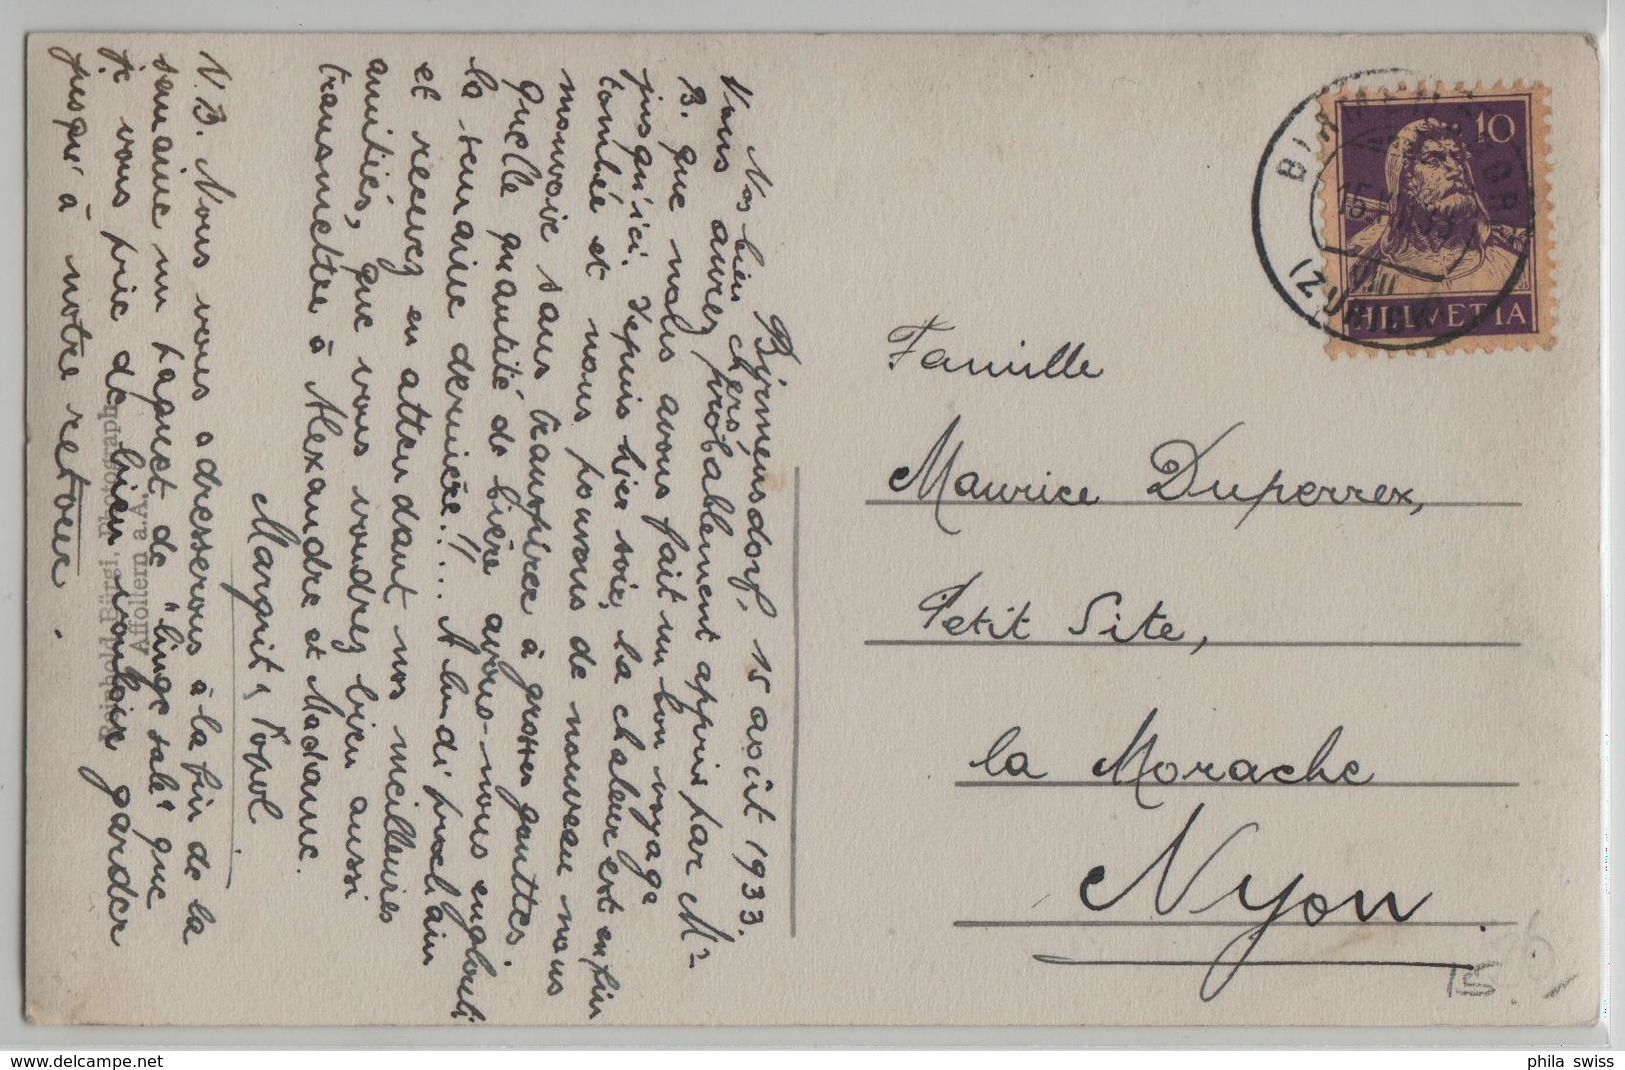 Birmensdorf, 15 août 1933.
Nos bien chers,
Vous aurez probablement appris par Mr
B. que nous avons fait un bon voyage
jusqu'ici. Depuis hier soir, la chaleur est enfin
tombée et nous pouvons de nouveau nous
mouvoir sans transpirer à grosses gouttes.
Quelle quantité de bière avons-nous englouti
la semaine dernière!!... A lundi prochain
et recevez en attendant nos meilleures
amitiés, que vous voudrez bien aussi
transmettre à Alexandre et Madame.
Margrit &
N.B. Nous vous adresserons à la fin de la
semaine un paquet de "linge sale" que
je vous prie de bien vouloir garder
jusqu'à notre retour.
Reinhold Bürgi, Photograph
Affoltern a.A.
BIRMENSDORF
15.VIII.33
(ZÜRICH)
10
HELVETIA
Famille
Maurice Duperrex,
Petit Site,
la Morache
Nyon
15.-
phila swiss
www.delcampe.net